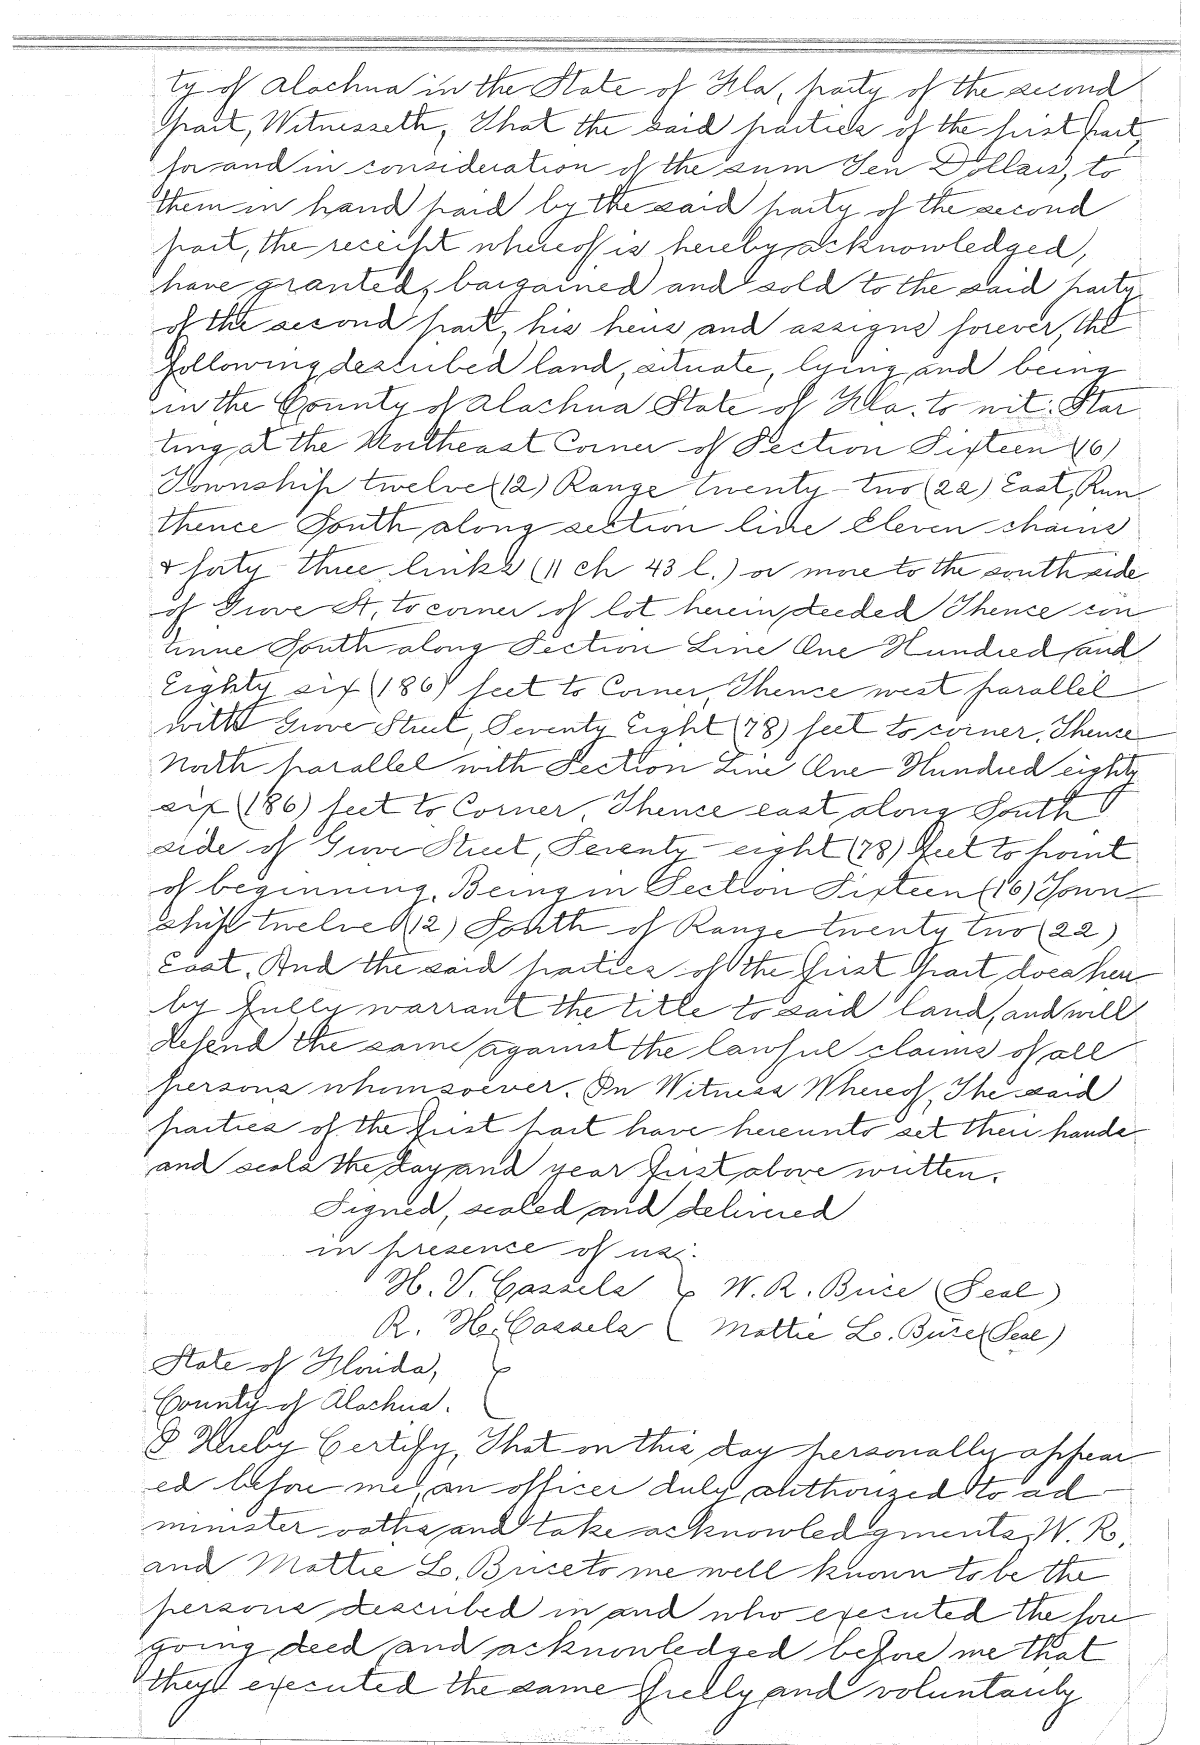 ty of Alachua in the State of Fla, party of the second
part, Witnesseth, That the said parties of the first part,
for and in consideration of the sum Ten Dollars, to
them in hand paid by the said party of the second
part, the receipt whereof is hereby acknowledged,
have granted, bargained and sold to the said party
of the second part, his heirs and assigns forever, the
following described land, situate, lying and being
in the County of Alachua State of Fla. to wit: Star
ting at the Northeast Corner of Section Sixteen (16)
Township twelve (12) Range twenty-two (22) East, Run
thence South along section line Eleven chains
& forty three links (11 ch 43 l.) or more to the south side
of Grove St, to corner of lot herein deeded Thence con
tinue South along Section Line One Hundred and
Eighty six (186) feet to Corner, Thence west parallel
with Grove Street, Seventy Eight (78) feet to corner. Thence
North parallel with Section Line One Hundred eighty
six (186) feet to Corner, Thence east along South
side of Grove Street, Seventy-eight (78) feet to point
of beginning. Being in Section Sixteen (16) Town-
ship twelve (12) South of Range twenty two (22)
East. And the said parties of the first part does here
by fully warrant the title to said land, and will
defend the same against the lawful claims of all
persons whomsoever. In Witness Whereof, The said
parties of the first part have hereunto set their hands
and seals the day and year first above written.
Signed, sealed and delivered
in presence of us:
H. V. Cassels } W. R. Brice (Seal)
R. H. Cassels ( Mattie L. Brice (Seal)
State of Florida, }
County of Alachua.
I Hereby Certify, That on this day personally appear
ed before me, an officer duly authorized to ad-
minister oaths and take acknowledgments, W. R.
and Mattie L. Brice to me well known to be the
persons described in and who executed the fore
going deed and acknowledged before me that
they executed the same freely and voluntarily